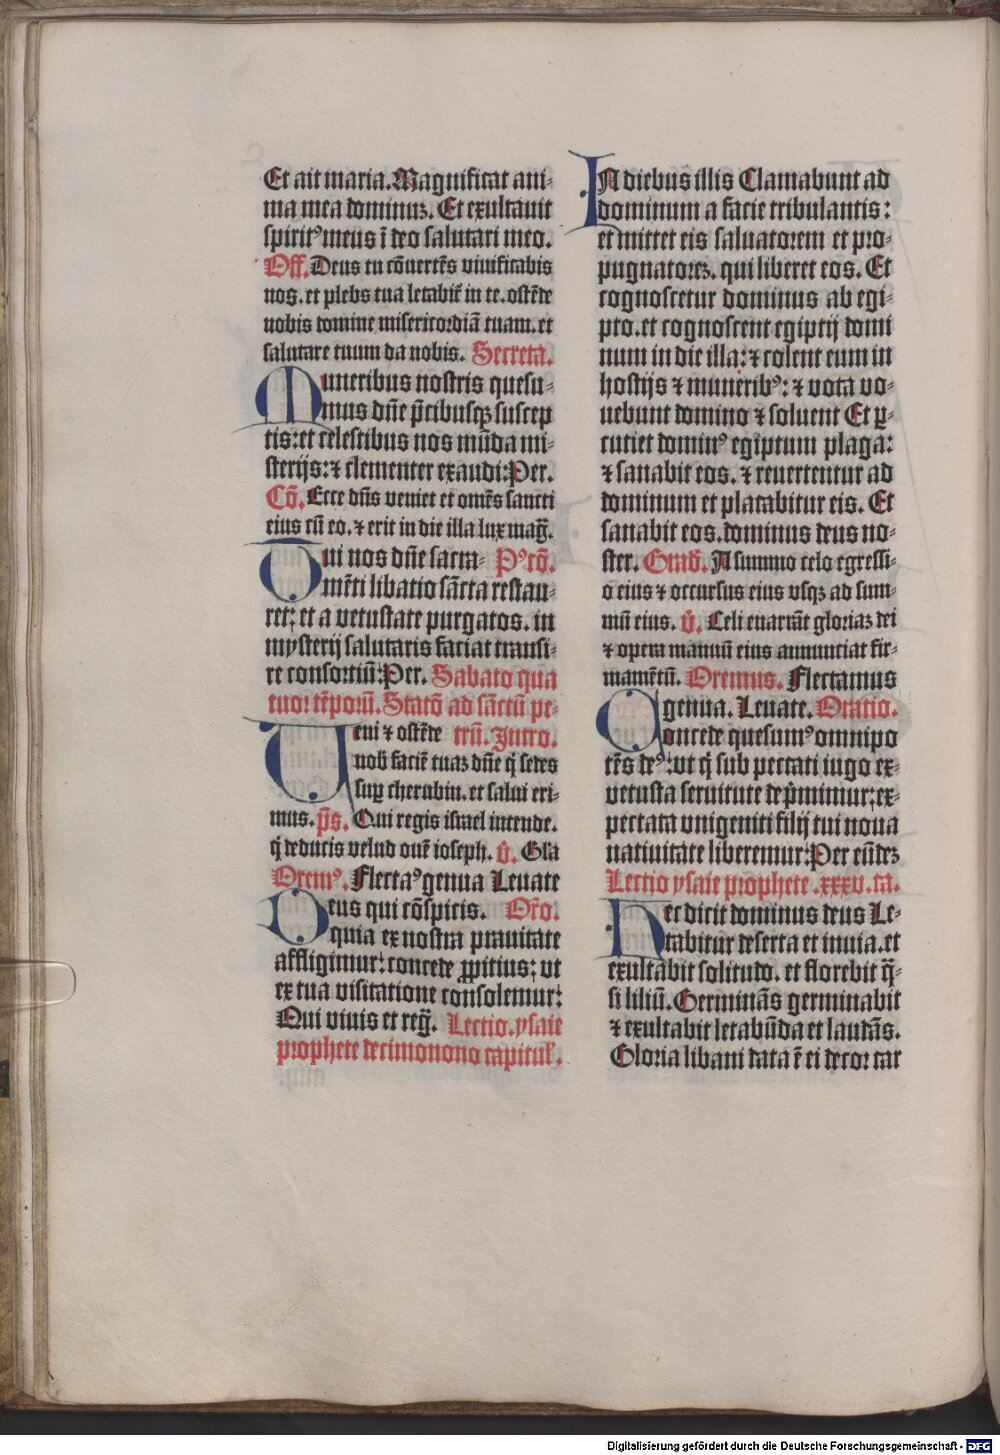 Et ait maria. Magnificat ani-
ma mea dominuz. Et exultauit
spiritꝰ meus ī deo salutari meo.
Off. Deus tu cōuertēs viuificabis
nos. et plebs tua letabit̄ in te. ostēde
nobis domine misericordiā tuam. et
salutare tuum da nobis. Secreta.
Muneribus nostris quesu-
mus dn̄e p̄cibusqꝫ suscep
tis: et celestibus nos mūda mi-
sterijs: ⁊ clementer exaudi: Per.
Cō. Ecce dn̄s veniet et omēs sancti
eius cū eo. ⁊ erit in die illa lux maḡ.
Qui nos dn̄e sacra- Pꝰcō.
mēti libatio sācta restau-
ret: et a vetustate purgatos. in
mysterij salutaris faciat transi-
re consortiū: Per. Sabato qua
tuor tēporū. Statō ad sāctū pe-
Ueni ⁊ ostēde trū. Intro.
nob̄ faciē tuaz dn̄e q̄ sedes
suꝑ cherubin. et salui eri-
mus. p̄s. Qui regis israel intende.
q̄ deducis velud ouē ioseph. v̄. Gl̄a
Oremꝰ. Flectaꝰ genua Leuate
Deus qui cōspicis. Or̄o.
quia ex nostra prauitate
affligimur: concede ꝓpitius: vt
ex tua visitatione consolemur:
Qui viuis et reḡ. Lectio. ysaie
prophete decimonono capitul̄.
IN diebus illis Clamabunt ad
dominum a facie tribulantis:
et mittet eis saluatorem et pro-
pugnatorez. qui liberet eos. Et
cognoscetur dominus ab egi-
pto. et cognoscent egiptij domi
num in die illa: ⁊ colent eum in
hostijs ⁊ muneribꝰ: ⁊ vota vo-
uebunt domino ⁊ soluent Et ꝑ-
cutiet dominꝰ egiptum plaga:
⁊ sanabit eos. ⁊ reuertentur ad
dominum et placabitur eis. Et
sanabit eos. dominus deus no-
ster. Grad̄. A summo celo egressi-
o eius ⁊ occursus eius vsqꝫ ad sum-
mū eius. v̄. Celi enarrāt gloriaz dei
⁊ opera manuū eius annunciat fir-
mamētū. Oremus. Flectamus
genua. Leuate. Oratio.
Concede quesumꝰ omnipo
tēs deꝰ: vt q̄ sub peccati iugo ex-
vetusta seruitute dep̄mimur: ex-
pectata vnigeniti filij tui noua
natiuitate liberemur: Per eūdez
Lectio ysaie prophete .xxxv. ca.
Hec dicit dominus deus Le-
tabitur deserta et inuia. et
exultabit solitudo. et florebit q̄-
si liliū. Germinās germinabit
⁊ exultabit letabūda et laudās.
Gloria libani data ē ei decor car
Digitalisierung gefördert durch die Deutsche Forschungsgemeinschaft - DFG